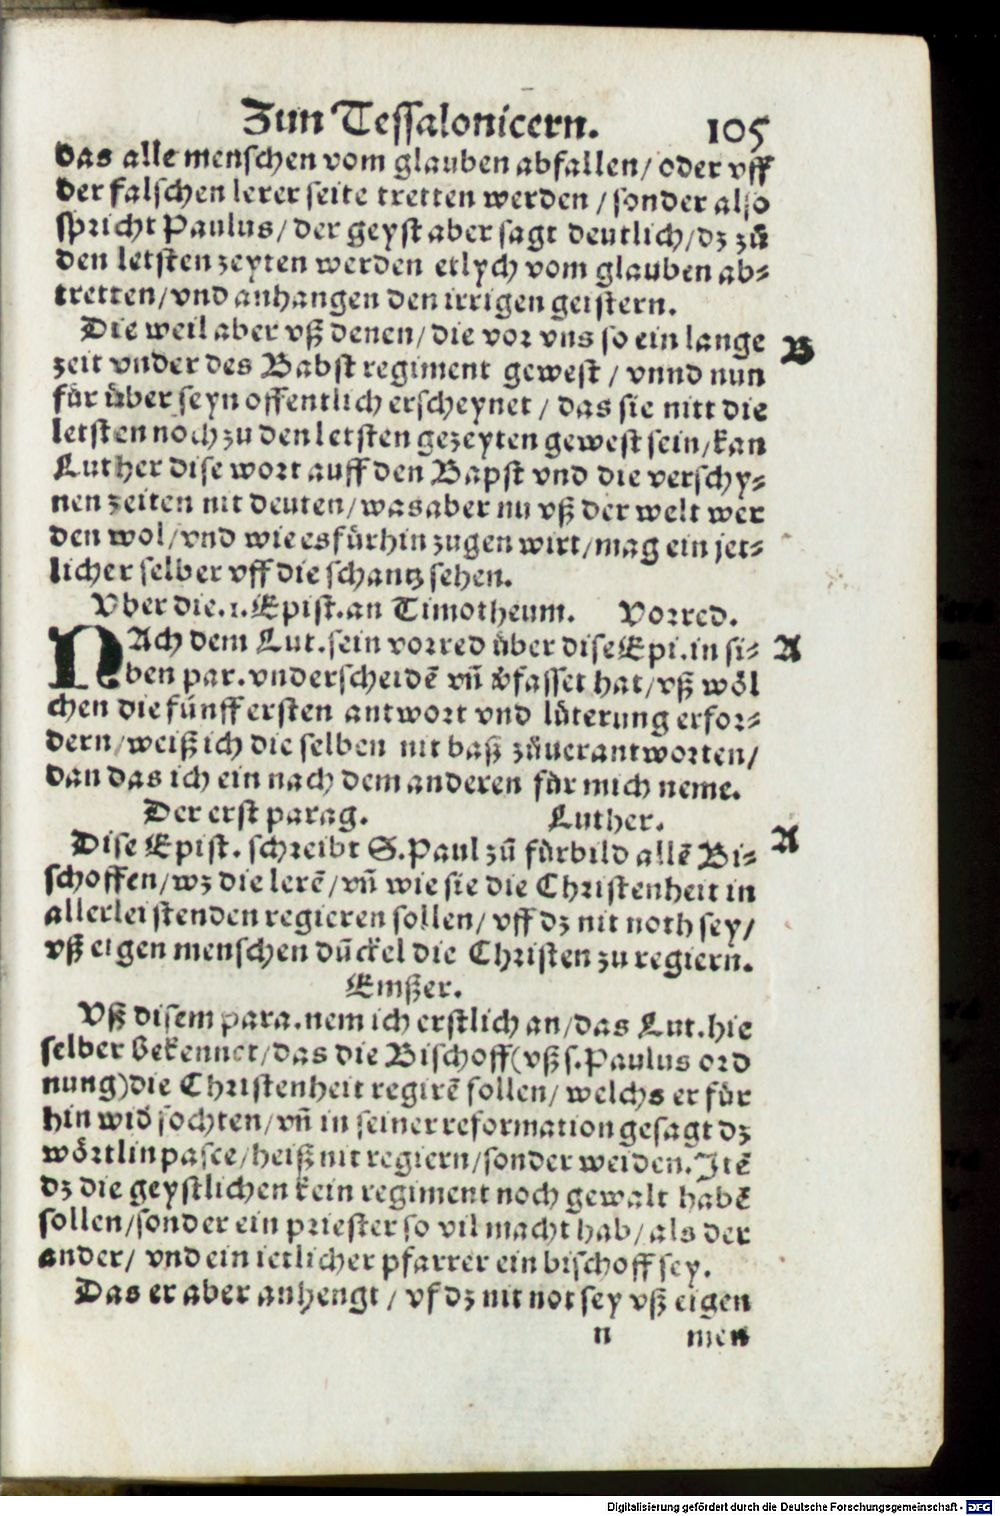 Zun Tessalonicern. 105
das alle menschen vom glauben abfallen/ oder vff
der falschen lerer seite tretten werden / sonder also
spricht Paulus/ der geyst aber sagt deutlich/ dz zů
den letsten zeyten werden etlych vom glauben ab-
tretten/ vnd anhangen den irrigen geistern.
Die weil aber vß denen/ die vor vns so ein lange
B
zeit vnder des Babst regiment gewest / vnnd nun
für über seyn offentlich erscheynet / das sie nitt die
letsten noch zu den letsten gezeyten gewest sein/ kan
Luther dise wort auff den Bapst vnd die verschy-
nen zeiten nit deuten/ was aber nu vß der welt wer
den wol/ vnd wie es fürhin zugen wirt/ mag ein jet-
licher selber vff die schantz sehen.
Vber die .1. Epist. an Timotheum. Vorred.
NAch dem Lut. sein vorred über dise Epi. in si-
A
ben par. vnderscheidē vn̄ v̓fasset hat/ vß wöl
chen die fünff ersten antwort vnd lüterung erfor-
dern/ weiß ich die selben nit baß zůuerantworten/
dan das ich ein nach dem anderen für mich neme.
Der erst parag. Luther.
Dise Epist. schreibt S. Paul zů fürbild allē Bi-
A
schoffen/ wz die lerē/ vn̄ wie sie die Christenheit in
allerlei stenden regieren sollen/ vff dz nit noth sey/
vß eigen menschen dūckel die Christen zu regiern.
Emßer.
Vß disem para. nem ich erstlich an/ das Lut. hie
selber bekennet/ das die Bischoff (vß s. Paulus ord
nung) die Christenheit regirē sollen/ welchs er für
hin wid̓ fochten/ vn̄ in seiner reformation gesagt dz
wörtlin pasce/ heiß nit regiern/ sonder weiden. Itē
dz die geystlichen kein regiment noch gewalt habē
sollen/ sonder ein priester so vil macht hab/ als der
ander/ vnd ein ietlicher pfarrer ein bischoff sey.
Das er aber anhengt / vf dz nit not sey vß eigen
n men
Digitalisierung gefördert durch die Deutsche Forschungsgemeinschaft - DFG